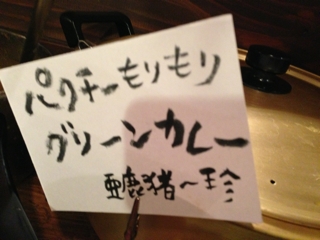 パクチーもりもり
グリーンカレー